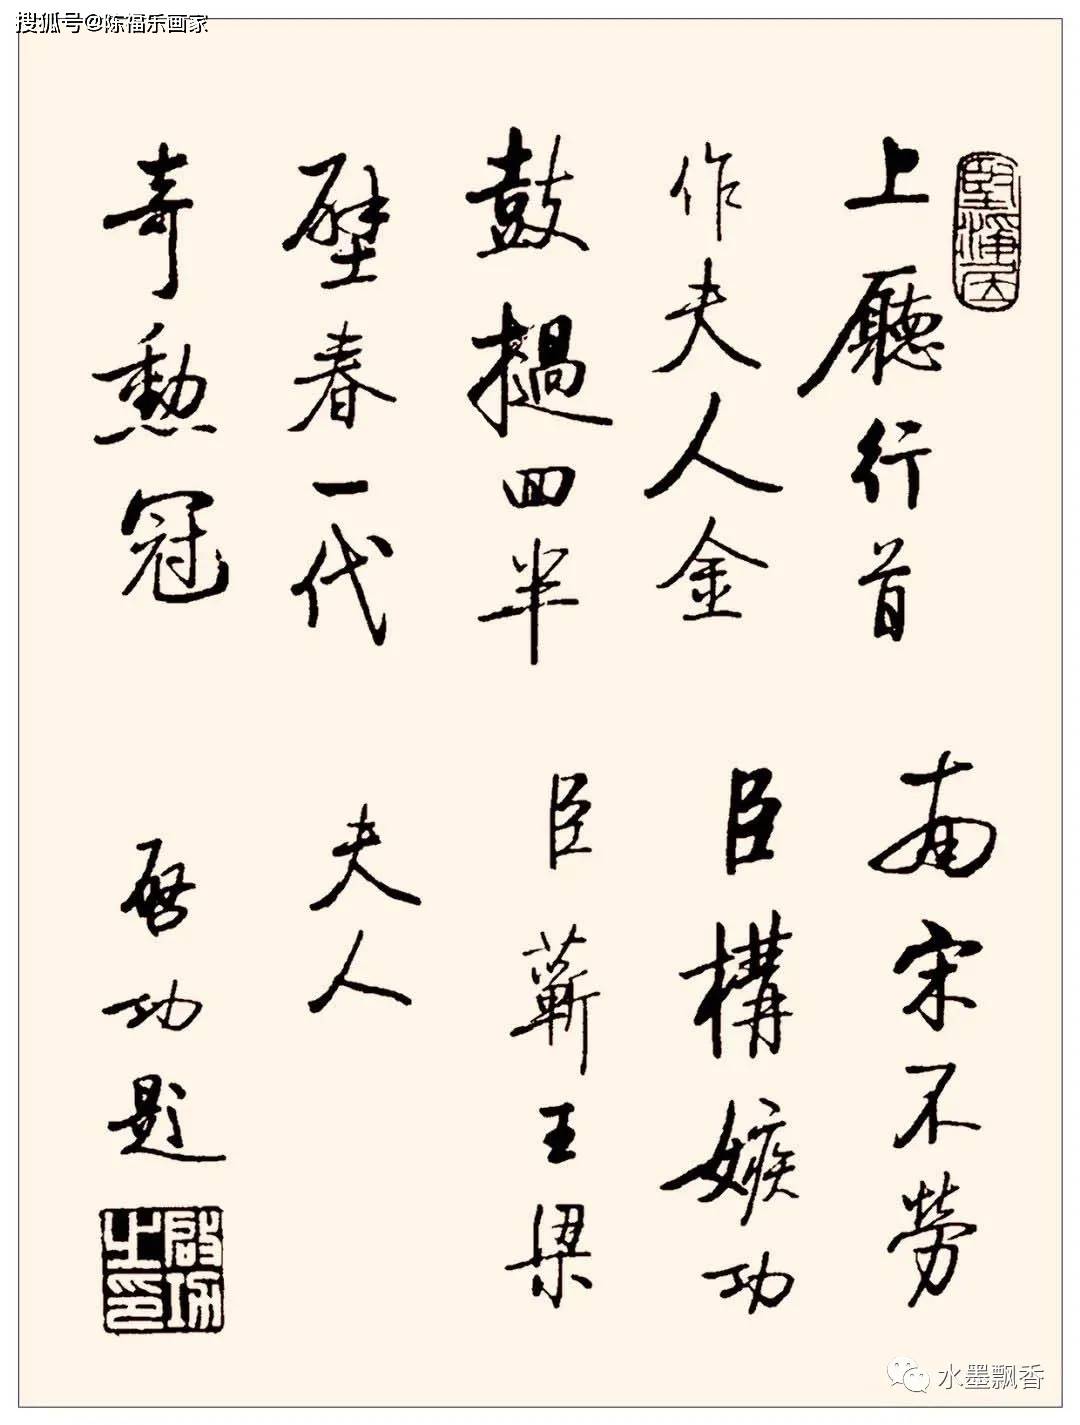 搜狐号@陈福乐画家
堅淨居
上廳行首
作夫人金
鼓撾回半
壁春一代
奇勳冠
南宋不勞
臣構嫉功
臣蘄王梁
夫人
啓功題
啓功之印
水墨飘香